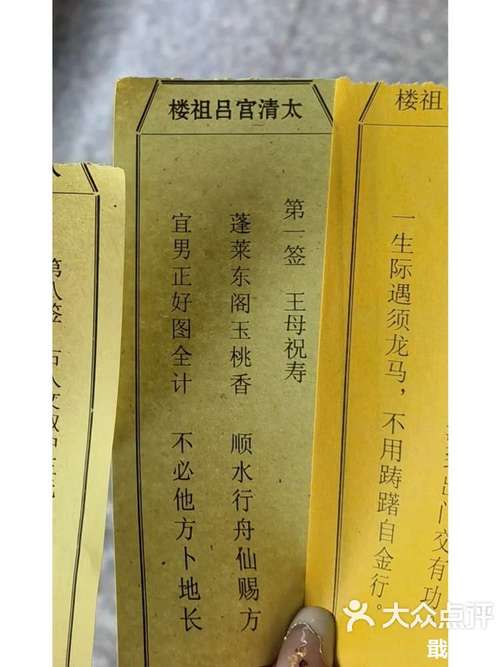 太清宫吕祖楼
第一签 王母祝寿
蓬莱东阁玉桃香 顺水行舟仙赐方
宜男正好图全计 不必他方卜地长
祖楼
一生际遇须龙马，不用踌躇自金行。
出门交有功
第八签
大众点评